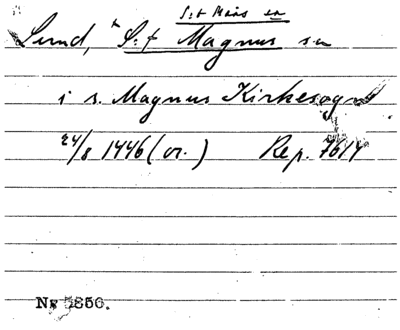 S:t Måns sn
Lund, * S:t Magnus sn
i s. Magnus Kirkesogn
24/8 1446 (or.) Rep. 7614
Nr 5856.